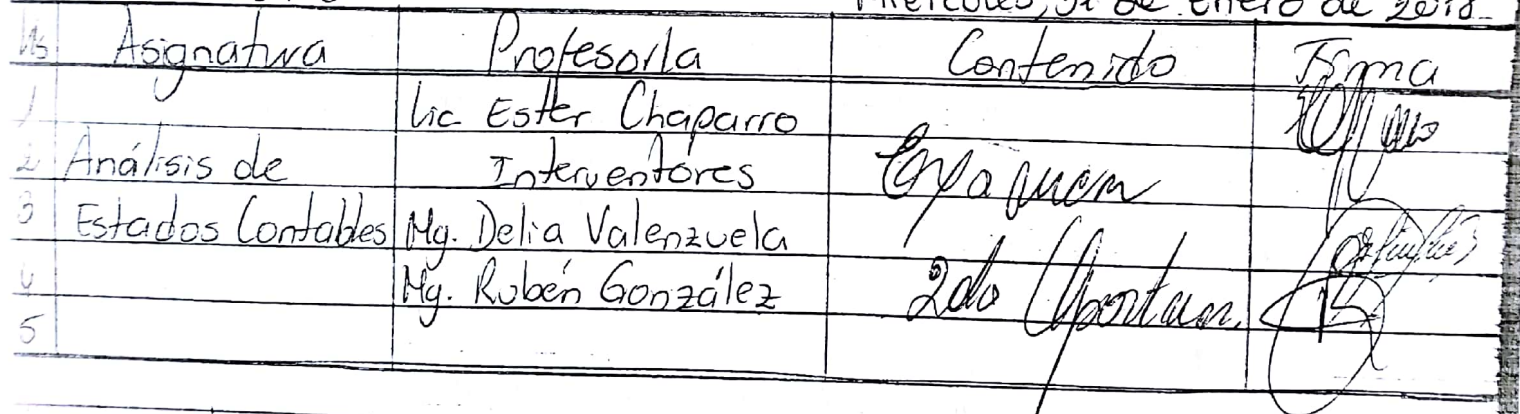 Miércoles, 31 de Enero de 2018
Hs Asignatura Profesor/a Contenido Firma
1 Lic Ester Chaparro
2 Análisis de Interventores Examen
3 Estados Contables Mg. Delia Valenzuela
4 Mg. Rubén González 2da
5